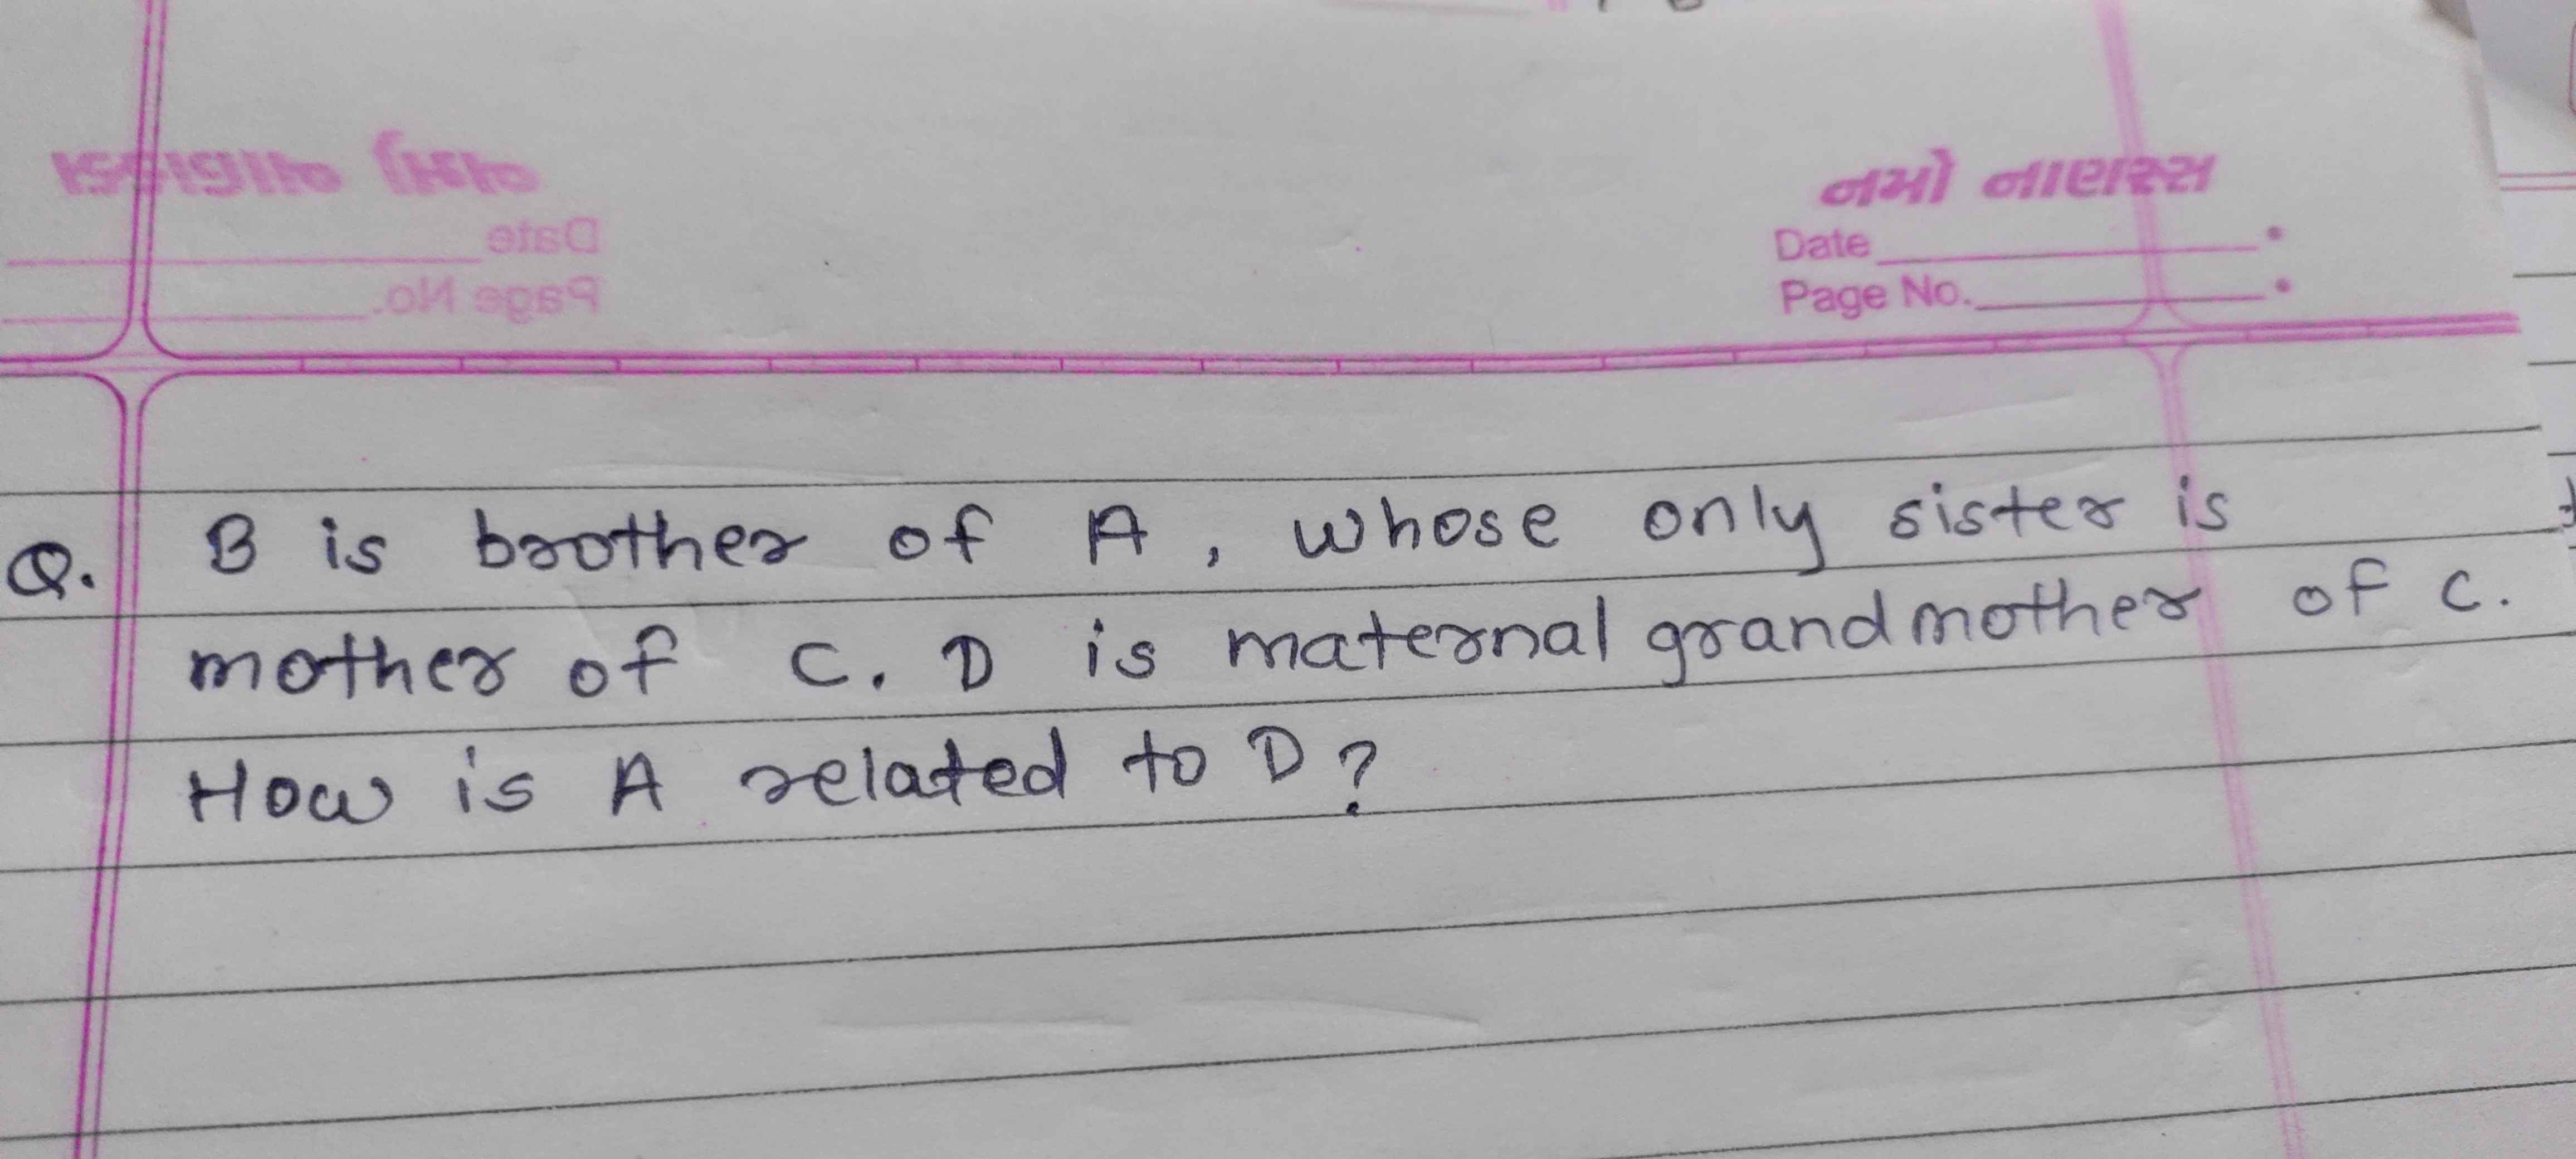 નમો નારાયણ
Date
Page No.
Q. B is brother of A, whose only sister is
mother of C. D is maternal grandmother of C.
How is A related to D?